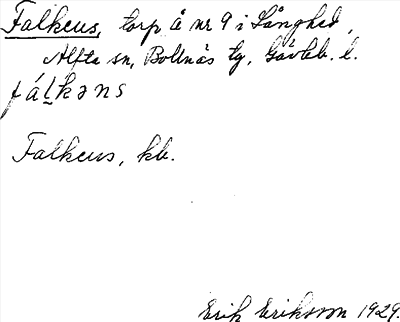 Falkens, torp å nr 9 i Långhed,
Alfta sn, Bollnäs tg, Gävleb. l.
fál̲kəns
Falkens, kb.
Erik Erikson 1929.